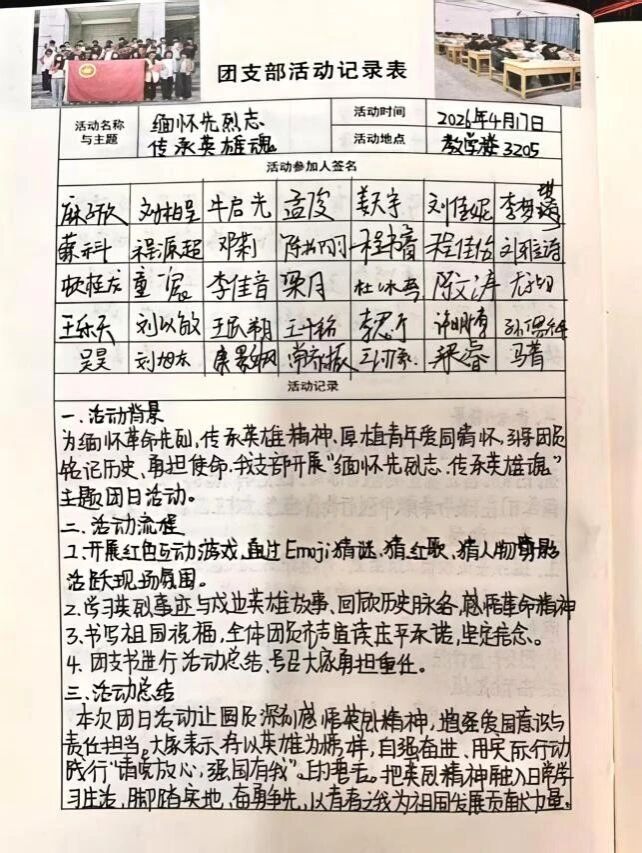 团支部活动记录表
活动名称与主题 缅怀先烈志 传承英雄魂 活动时间 2026年4月17日
活动地点 教学楼3205
活动参加人签名
刘柏呈 牛启光 孟俊 姜天宇 刘佳妮 李梦
程源超 邓莉 程佳怡 刘雅涛
李佳音 梁月 陈文涛
王乐天 刘以敏
吴昊 刘旭东 马菁
活动记录
一.活动背景
为缅怀革命先烈,传承英雄精神、厚植青年爱国情怀,引导团员
铭记历史、勇担使命.我支部开展“缅怀先烈志.传承英雄魂”
主题团日活动。
二、活动流程
1.开展红色互动游戏,通过Emoji猜谜、猜红歌、猜人物剪影
活跃现场氛围。
2.学习英烈事迹与戍边英雄故事、回顾历史脉络,感悟革命精神
3.书写祖国祝福,全体团员齐声宣读庄严承诺,坚定信念。
4.团支书进行活动总结、号召大家勇担重任。
三、活动总结
本次团日活动让团员深刻感悟英烈精神,增强爱国意识与
责任担当。大家表示将以英雄为榜样,自强奋进、用实际行动
践行“请党放心,强国有我”的誓言。把英烈精神融入日常学
习生活,脚踏实地,奋勇争先,以青春之我为祖国发展贡献力量。